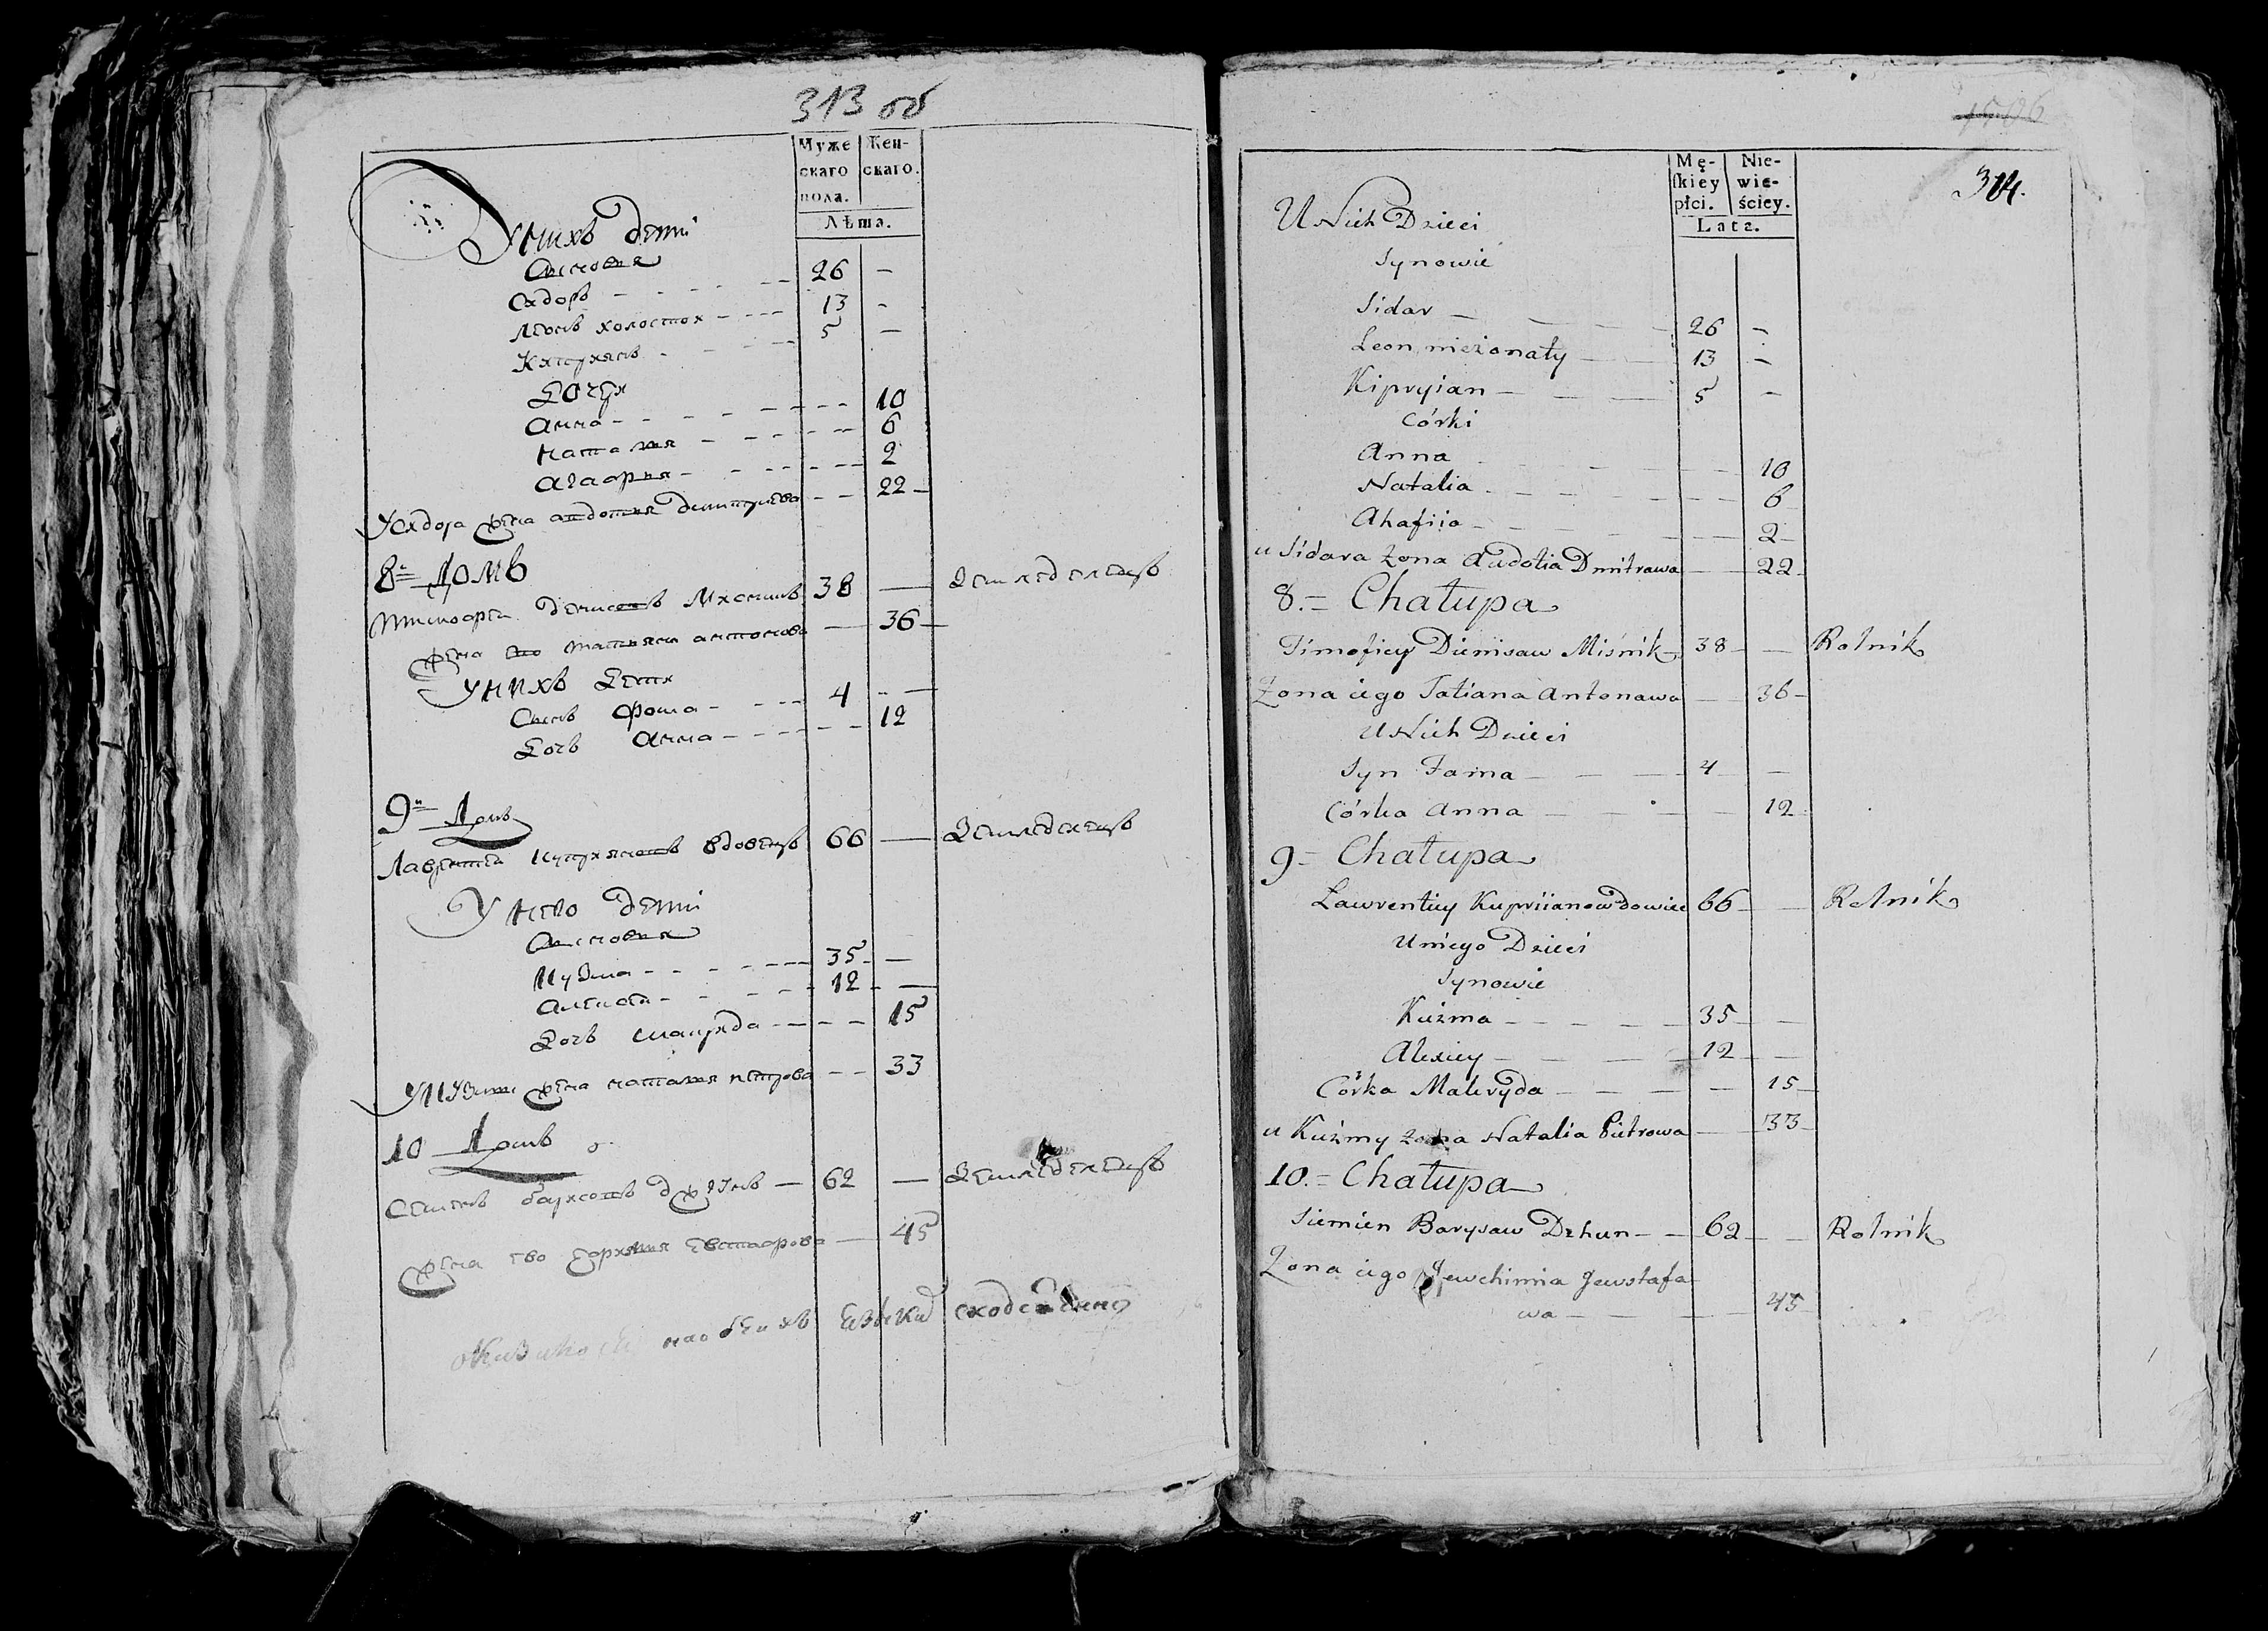 313 об
Муже Жен-
скаго скаго.
пола.
Лѣта.
У нихъ дети
Сыновья
Сидоръ 26 —
Леонъ холостой 13 —
Киприянъ 5 —
Дочери
Анна 10
Наталия 6
Агафия 2
У Сидора жена Авдотия Дмитриева 22
8й Домъ
Тимофей Денисовъ Мисникъ 38 — Земледелецъ
жена его Татияна Антонова — 36
У нихъ Дети
Сынъ Фома 4 —
Дочь Анна 12
9й Домъ
Лаврентей Куприяновъ вдовецъ 66 — Земледелецъ
У него дети
Сыновья
Кузма 35 —
Алексей 12 —
Дочь 15
У Кузмы жена Наталия Петрова 33
10 Домъ
Семенъ Борисовъ 62 — Земледелецъ
жена его Евстафова — 45
на обеихъ
1506
314.
Mę- Nie-
skiey wie-
płci. ściey.
Lata.
U Nich Dzieci
Synowie
Sidar 26 —
Leon nieżonaty 13 —
Kipryian 5 —
Córki
Anna 10
Natalia 6
Ahafiia 2
u Sidara Żona Audotia Dmitrawa 22
8.= Chałupa
Timofiey Dienisaw Miśnik 38 — Rolnik
Żona iego Tatiana Antonawa — 36
U Nich Dzieci
Syn Fama 4 —
Córka Anna — 12
9= Chałupa
Lawrentiey Kupriianow wdowiec 66 — Rolnik
U niego Dzieci
Synowie
Kuźma 35 —
Alexiey 12 —
Córka Malwryda — 15
u Kuźmy żona Natalia Pietrowa — 33
10.= Chałupa
Siemien Barysaw Dzhun 62 — Rolnik
Żona iego Jewchimia Jewstafa
wa — 45